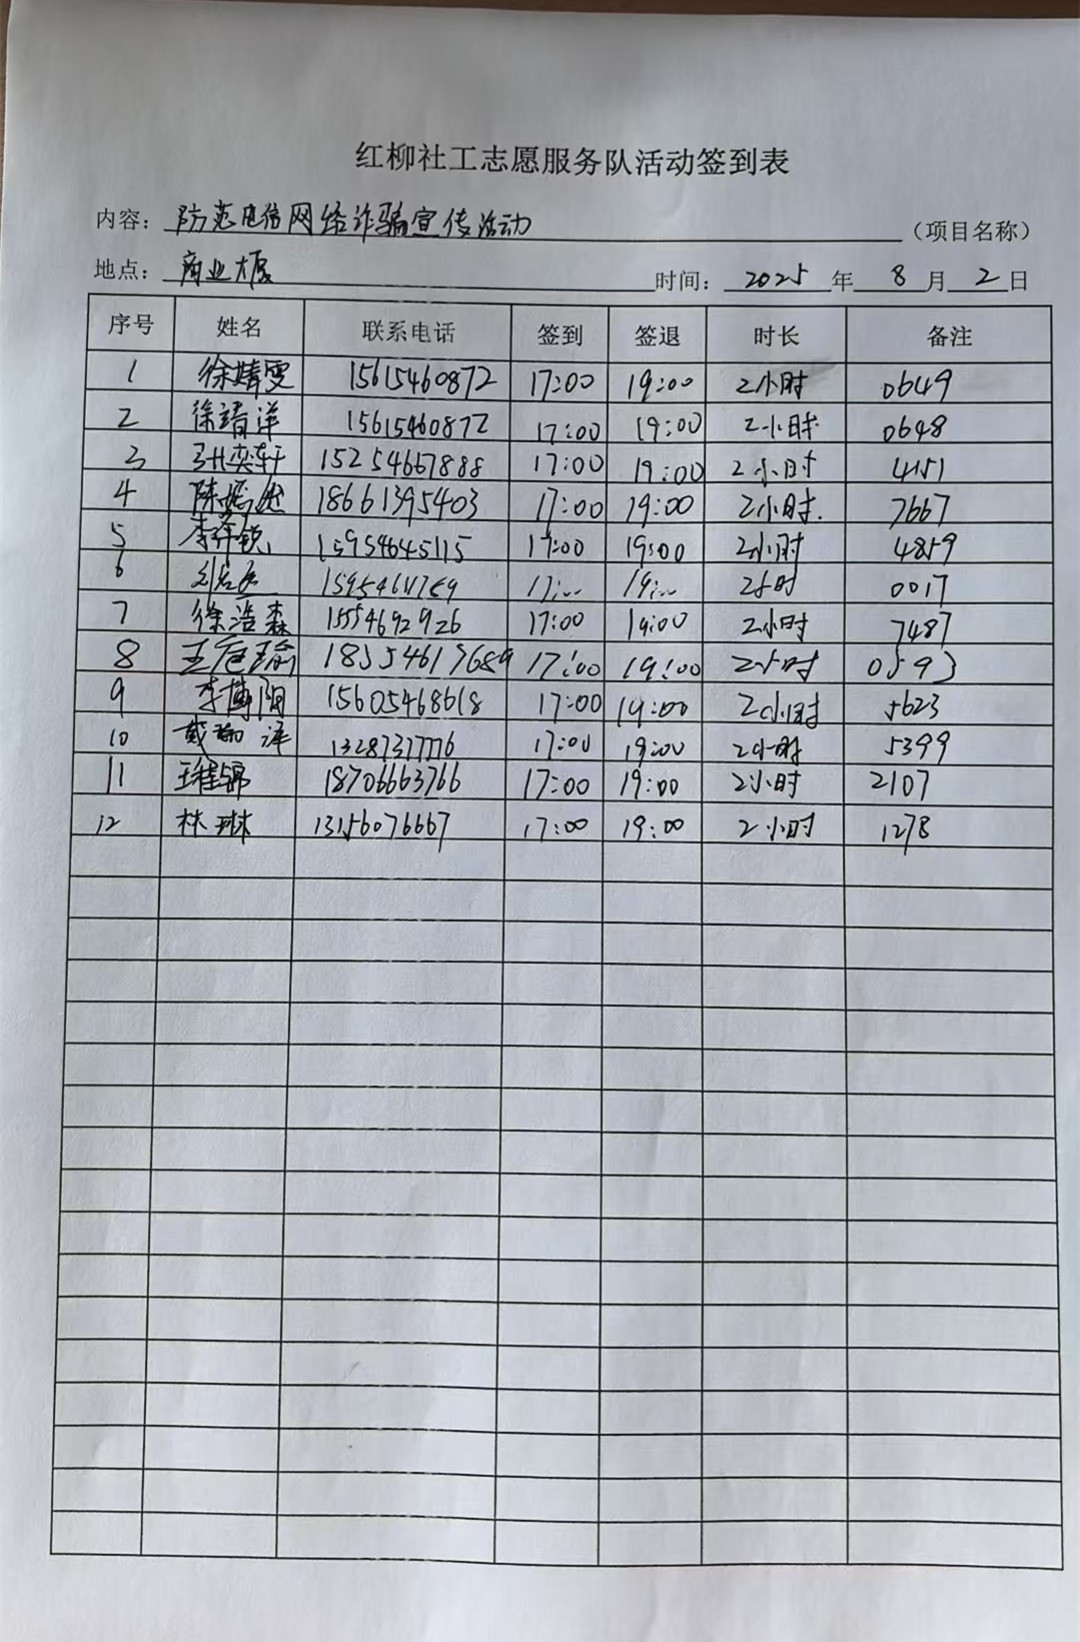 红柳社工志愿服务队活动签到表
内容：防范电信网络诈骗宣传活动（项目名称）
地点：商业大厦 时间：2025年8月2日
序号 姓名 联系电话 签到 签退 时长 备注
1 徐婧雯 15615460872 17:00 19:00 2小时 0649
2 徐靖洋 15615460872 17:00 19:00 2小时 0648
3 张奕轩 15254667888 17:00 19:00 2小时 4151
4 陈 18661395403 17:00 19:00 2小时. 7667
5 李 锐 15954645115 17:00 19:00 2小时 4859
6 17:.. 19:.. 2小时 0017
7 徐浩森 15554692926 17:00 19:00 2小时 7487
8 王 瑜 18554617689 17:00 19:00 2小时 0593
9 李博阳 15605468618 17:00 19:00 2小时 5623
10 戴 泽 13287317776 17:00 19:00 2小时 5399
11 王 18706663766 17:00 19:00 2小时 2107
12 林琳 13156076667 17:00 19:00 2小时 1278